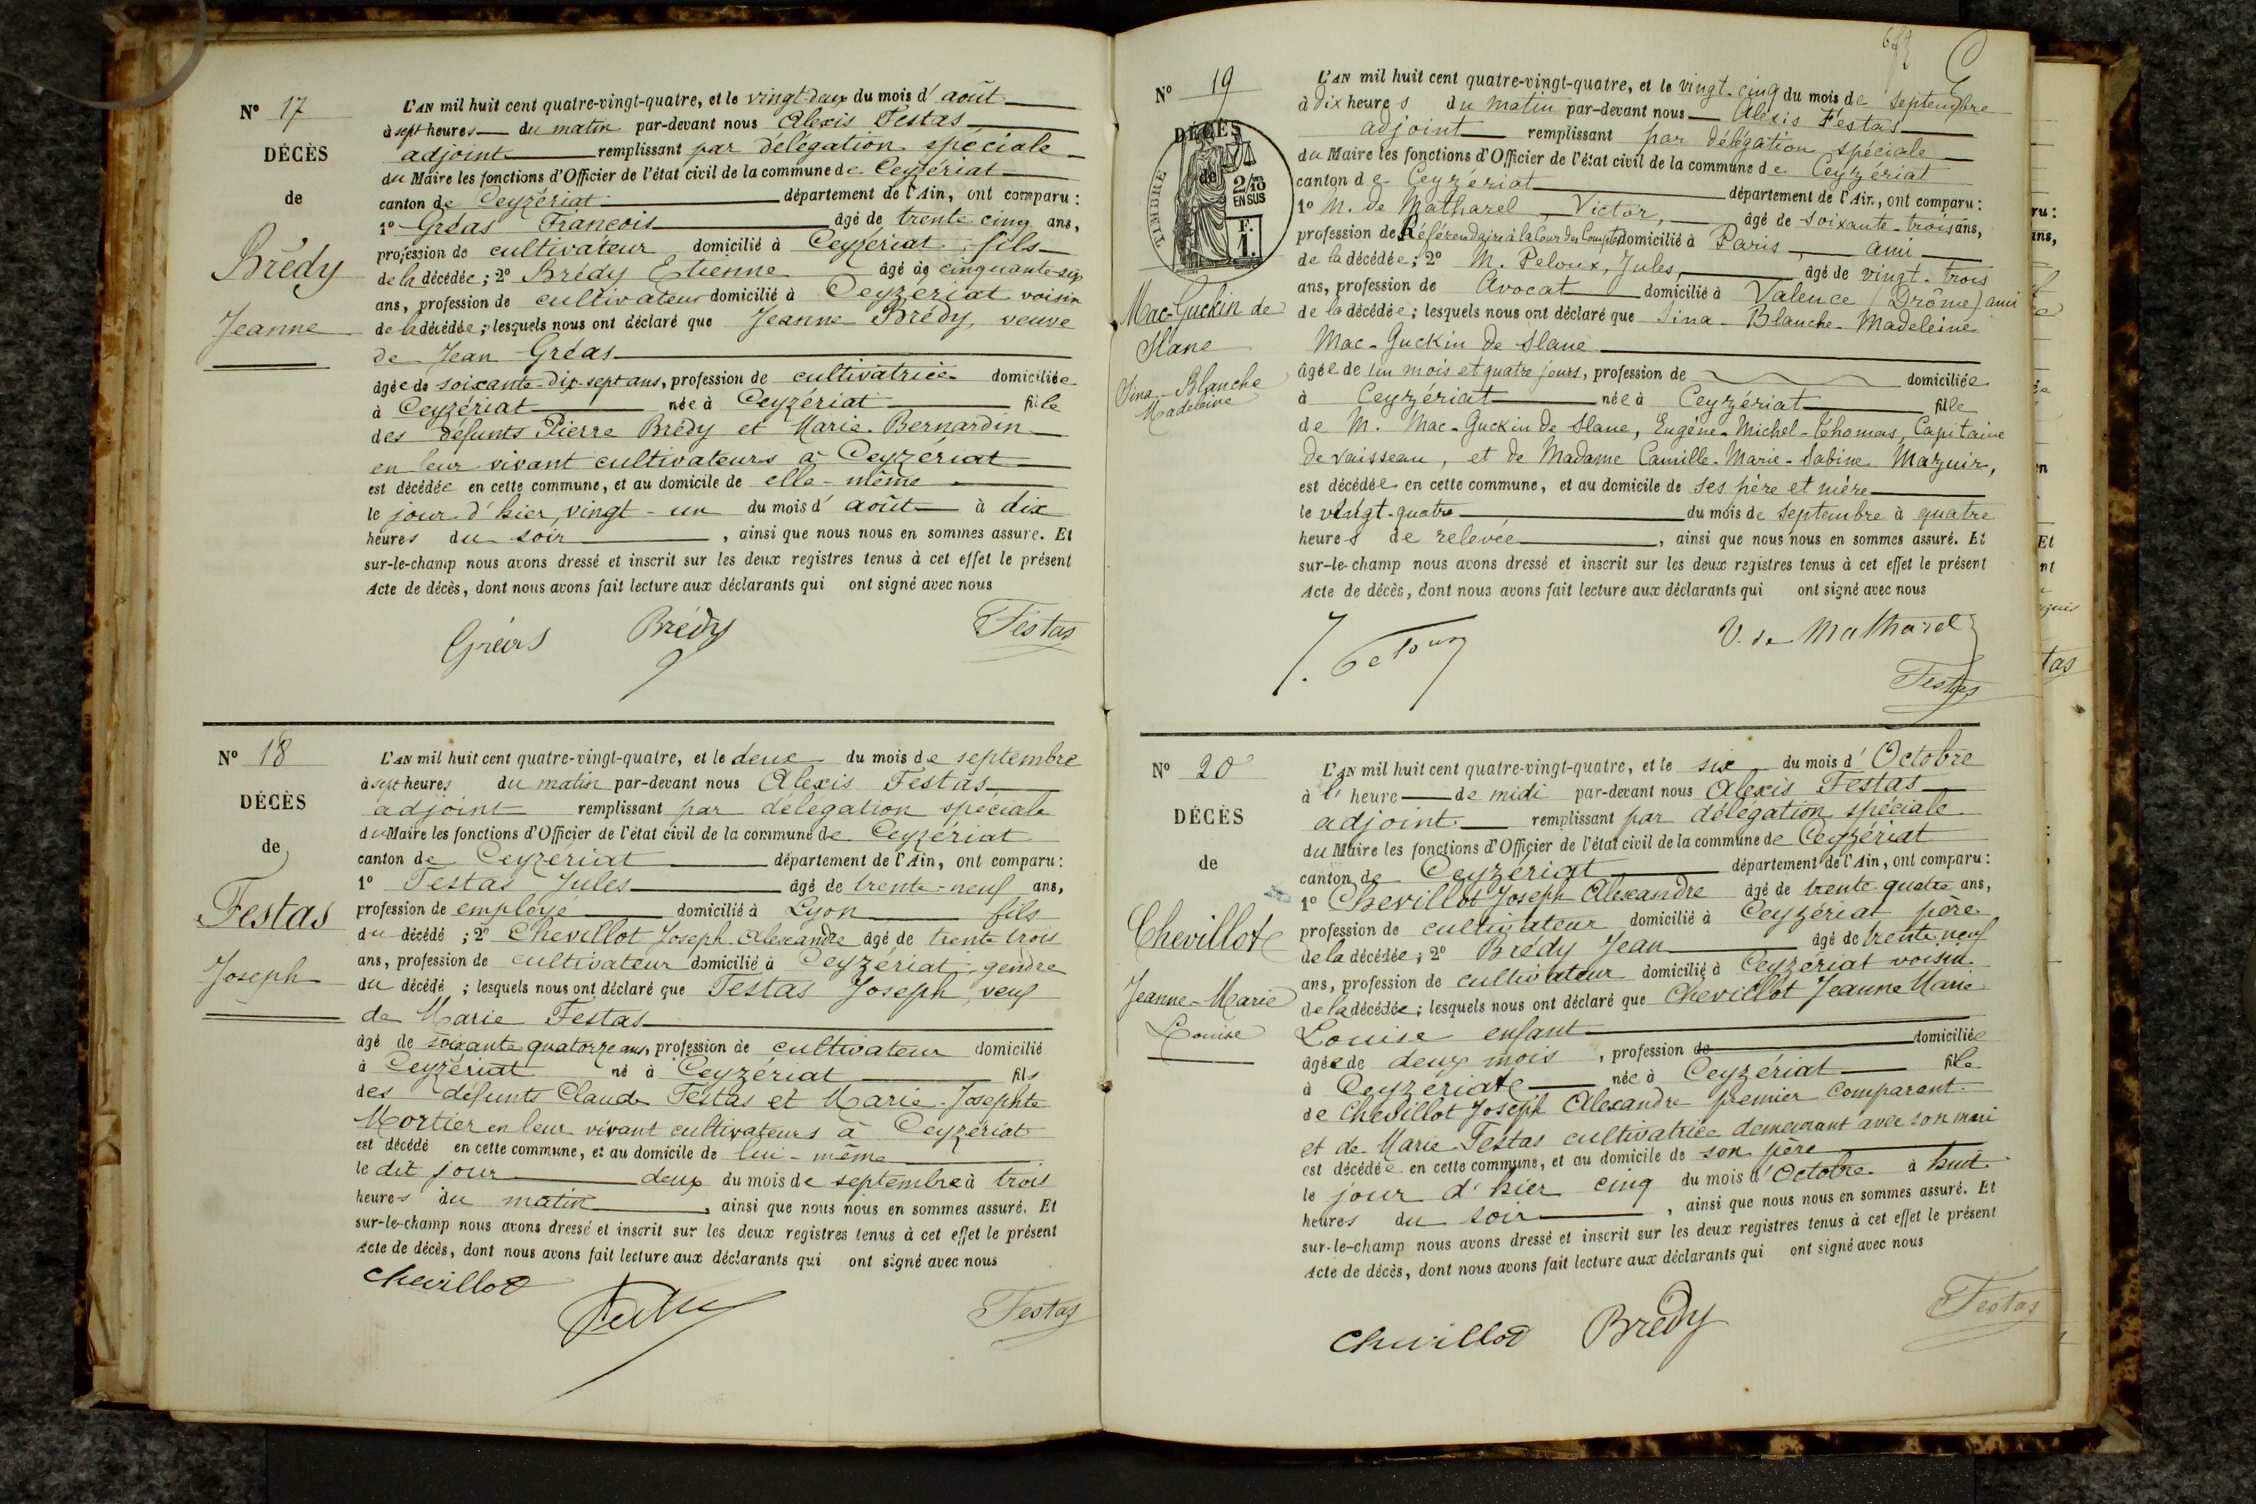 N° 17
DÉCÈS
de
Brédy
Jeanne
L'AN mil huit cent quatre-vingt-quatre, et le vingt-deux du mois d'août
à sept heures du matin par-devant nous Alexis Festas
adjoint remplissant par délégation spéciale
du Maire les fonctions d'Officier de l'état civil de la commune de Ceyzériat
canton de Ceyzériat département de l'Ain, ont comparu :
1° Gréas François âgé de trente cinq ans,
profession de cultivateur domicilié à Ceyzériat, fils
de la décédée ; 2° Brédy Etienne âgé de cinquante-six
ans, profession de cultivateur domicilié à Ceyzériat voisin
de la décédée ; lesquels nous ont déclaré que Jeanne Brédy, veuve
de Jean Gréas
âgée de soixante-dix-sept ans, profession de cultivatrice domiciliée
à Ceyzériat née à Ceyzériat fille
des défunts Pierre Brédy et Marie Bernardin
en leur vivant cultivateurs à Ceyzériat
est décédée en cette commune, et au domicile de elle-même
le jour d'hier, vingt-un du mois d'août à dix
heures du soir, ainsi que nous nous en sommes assuré. Et
sur-le-champ nous avons dressé et inscrit sur les deux registres tenus à cet effet le présent
Acte de décès, dont nous avons fait lecture aux déclarants qui ont signé avec nous
Gréas Brédy Festas
N° 18
DÉCÈS
de
Festas
Joseph
L'AN mil huit cent quatre-vingt-quatre, et le deux du mois de septembre
à sept heures du matin par-devant nous Alexis Festas
adjoint remplissant par délégation spéciale
du Maire les fonctions d'Officier de l'état civil de la commune de Ceyzériat
canton de Ceyzériat département de l'Ain, ont comparu :
1° Festas Jules âgé de trente-neuf ans,
profession de employé domicilié à Lyon fils
du décédé ; 2° Chevillot Joseph Alexandre âgé de trente trois
ans, profession de cultivateur domicilié à Ceyzériat, gendre
du décédé ; lesquels nous ont déclaré que Festas Joseph, veuf
de Marie Festas
âgé de soixante quatorze ans, profession de cultivateur domicilié
à Ceyzériat né à Ceyzériat fils
des défunts Claude Festas et Marie-Josephte
Mortier en leur vivant cultivateurs à Ceyzériat
est décédé en cette commune, et au domicile de lui-même
le dit jour deux du mois de septembre à trois
heures du matin, ainsi que nous nous en sommes assuré. Et
sur-le-champ nous avons dressé et inscrit sur les deux registres tenus à cet effet le présent
Acte de décès, dont nous avons fait lecture aux déclarants qui ont signé avec nous
Chevillot Festas
N° 19
DÉCÈS
de
TIMBRE
2/10
EN SUS
F.
1.
Mac-Guckin de
Slane
Sina-Blanche
Madeleine
L'AN mil huit cent quatre-vingt-quatre, et le vingt-cinq du mois de septembre
à dix heures du matin par-devant nous Alexis Festas
adjoint remplissant par délégation spéciale
du Maire les fonctions d'Officier de l'état civil de la commune de Ceyzériat
canton de Ceyzériat département de l'Ain, ont comparu :
1° M. de Matharel, Victor, âgé de soixante-trois ans,
profession de Référendaire à la Cour des Comptes domicilié à Paris, ami
de la décédée ; 2° M. Peloux, Jules, âgé de vingt-trois
ans, profession de Avocat domicilié à Valence (Drôme) ami
de la décédée ; lesquels nous ont déclaré que Sina-Blanche-Madeleine
Mac-Guckin de Slane
âgée de un mois et quatre jours, profession de domiciliée
à Ceyzériat née à Ceyzériat fille
de M. Mac-Guckin de Slane, Eugène-Michel-Thomas, Capitaine
de vaisseau, et de Madame Camille-Marie-Sabine Mazuir,
est décédée en cette commune, et au domicile de ses père et mère
le vingt-quatre du mois de septembre à quatre
heures de relevée, ainsi que nous nous en sommes assuré. Et
sur-le-champ nous avons dressé et inscrit sur les deux registres tenus à cet effet le présent
Acte de décès, dont nous avons fait lecture aux déclarants qui ont signé avec nous
J. Peloux V. de Matharel
Festas
N° 20
DÉCÈS
de
Chevillot
Jeanne-Marie
Louise
L'AN mil huit cent quatre-vingt-quatre, et le six du mois d'Octobre
à l'heure de midi par-devant nous Alexis Festas
adjoint remplissant par délégation spéciale
du Maire les fonctions d'Officier de l'état civil de la commune de Ceyzériat
canton de Ceyzériat département de l'Ain, ont comparu :
1° Chevillot Joseph Alexandre âgé de trente-quatre ans,
profession de cultivateur domicilié à Ceyzériat père
de la décédée ; 2° Brédy Jean âgé de trente neuf
ans, profession de cultivateur domicilié à Ceyzériat voisin
de la décédée ; lesquels nous ont déclaré que Chevillot Jeanne Marie
Louise enfant
âgée de deux mois, profession de domiciliée
à Ceyzériat née à Ceyzériat fille
de Chevillot Joseph Alexandre premier comparant
et de Marie Festas cultivatrice demeurant avec son mari
est décédée en cette commune, et au domicile de son père
le jour d'hier cinq du mois d'Octobre à huit
heures du soir, ainsi que nous nous en sommes assuré. Et
sur-le-champ nous avons dressé et inscrit sur les deux registres tenus à cet effet le présent
Acte de décès, dont nous avons fait lecture aux déclarants qui ont signé avec nous
Chevillot Brédy Festas